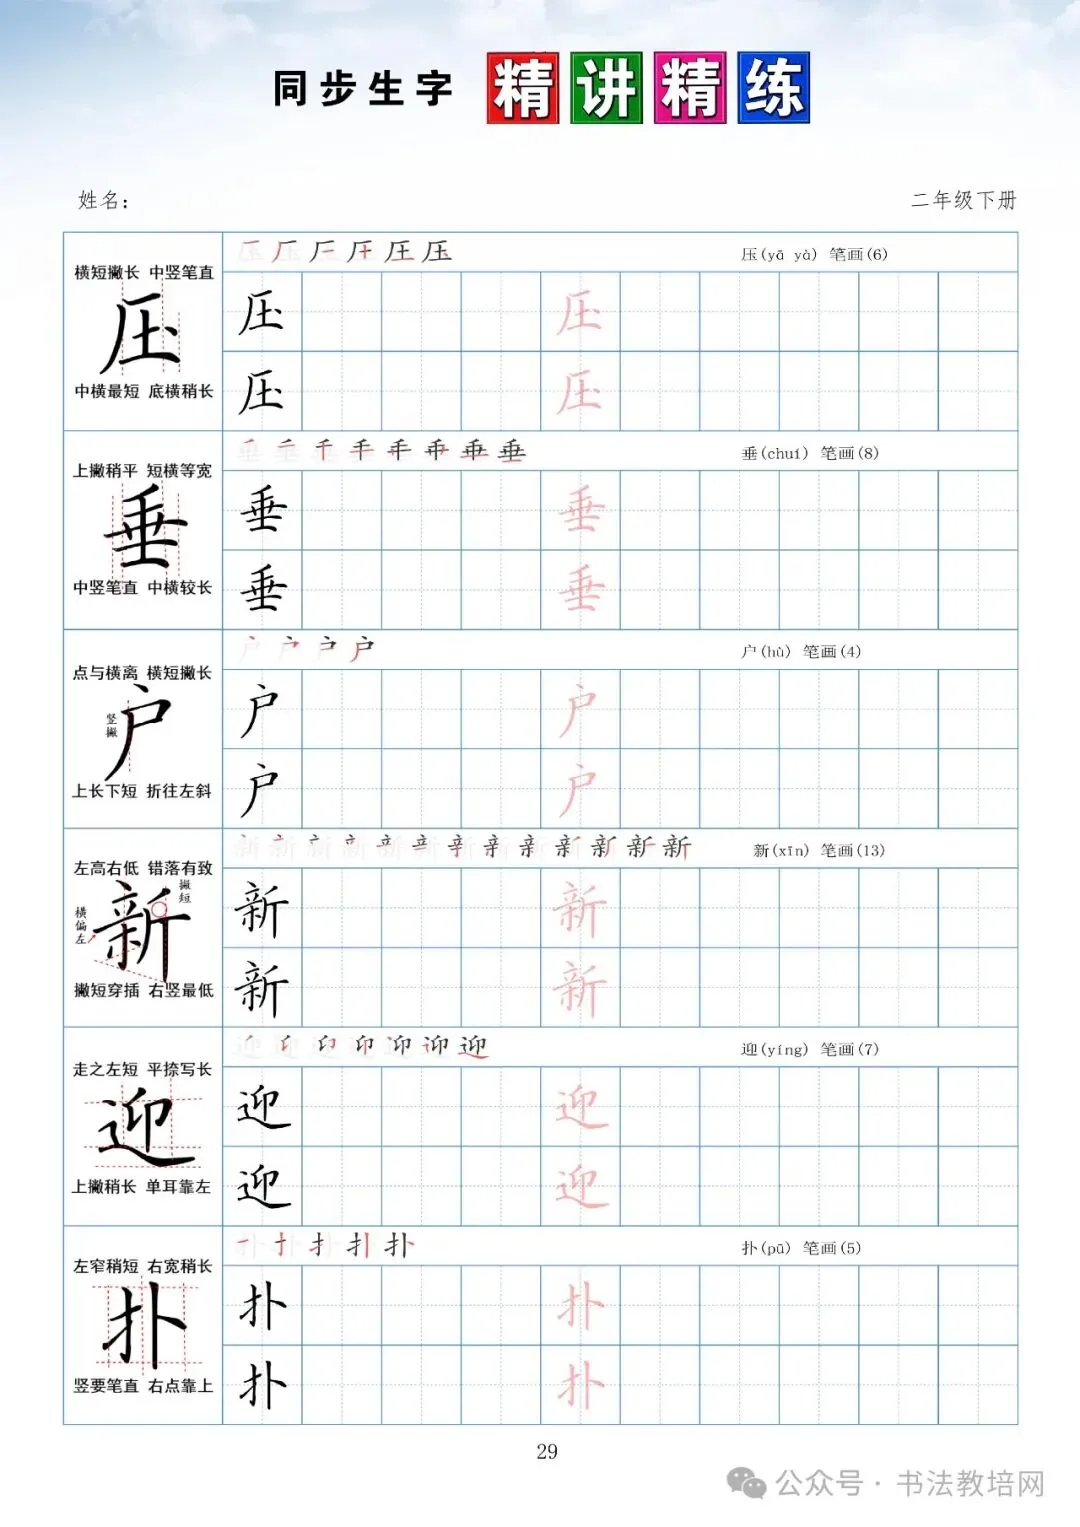 同步生字 精讲精练
姓名：
二年级下册
横短撇长 中竖笔直
压
中横最短 底横稍长
压(yā yà) 笔画(6)
压 压
压 压
上撇稍平 短横等宽
垂
中竖笔直 中横较长
垂(chuí) 笔画(8)
垂 垂
垂 垂
点与横离 横短撇长
竖撇
户
上长下短 折往左斜
户(hù) 笔画(4)
户 户
户 户
左高右低 错落有致
撇短
横偏左
新
撇短穿插 右竖最低
新(xīn) 笔画(13)
新 新
新 新
走之左短 平捺写长
迎
上撇稍长 单耳靠左
迎(yíng) 笔画(7)
迎 迎
迎 迎
左窄稍短 右宽稍长
扑
竖要笔直 右点靠上
扑(pū) 笔画(5)
扑 扑
扑 扑
29
公众号·书法教培网